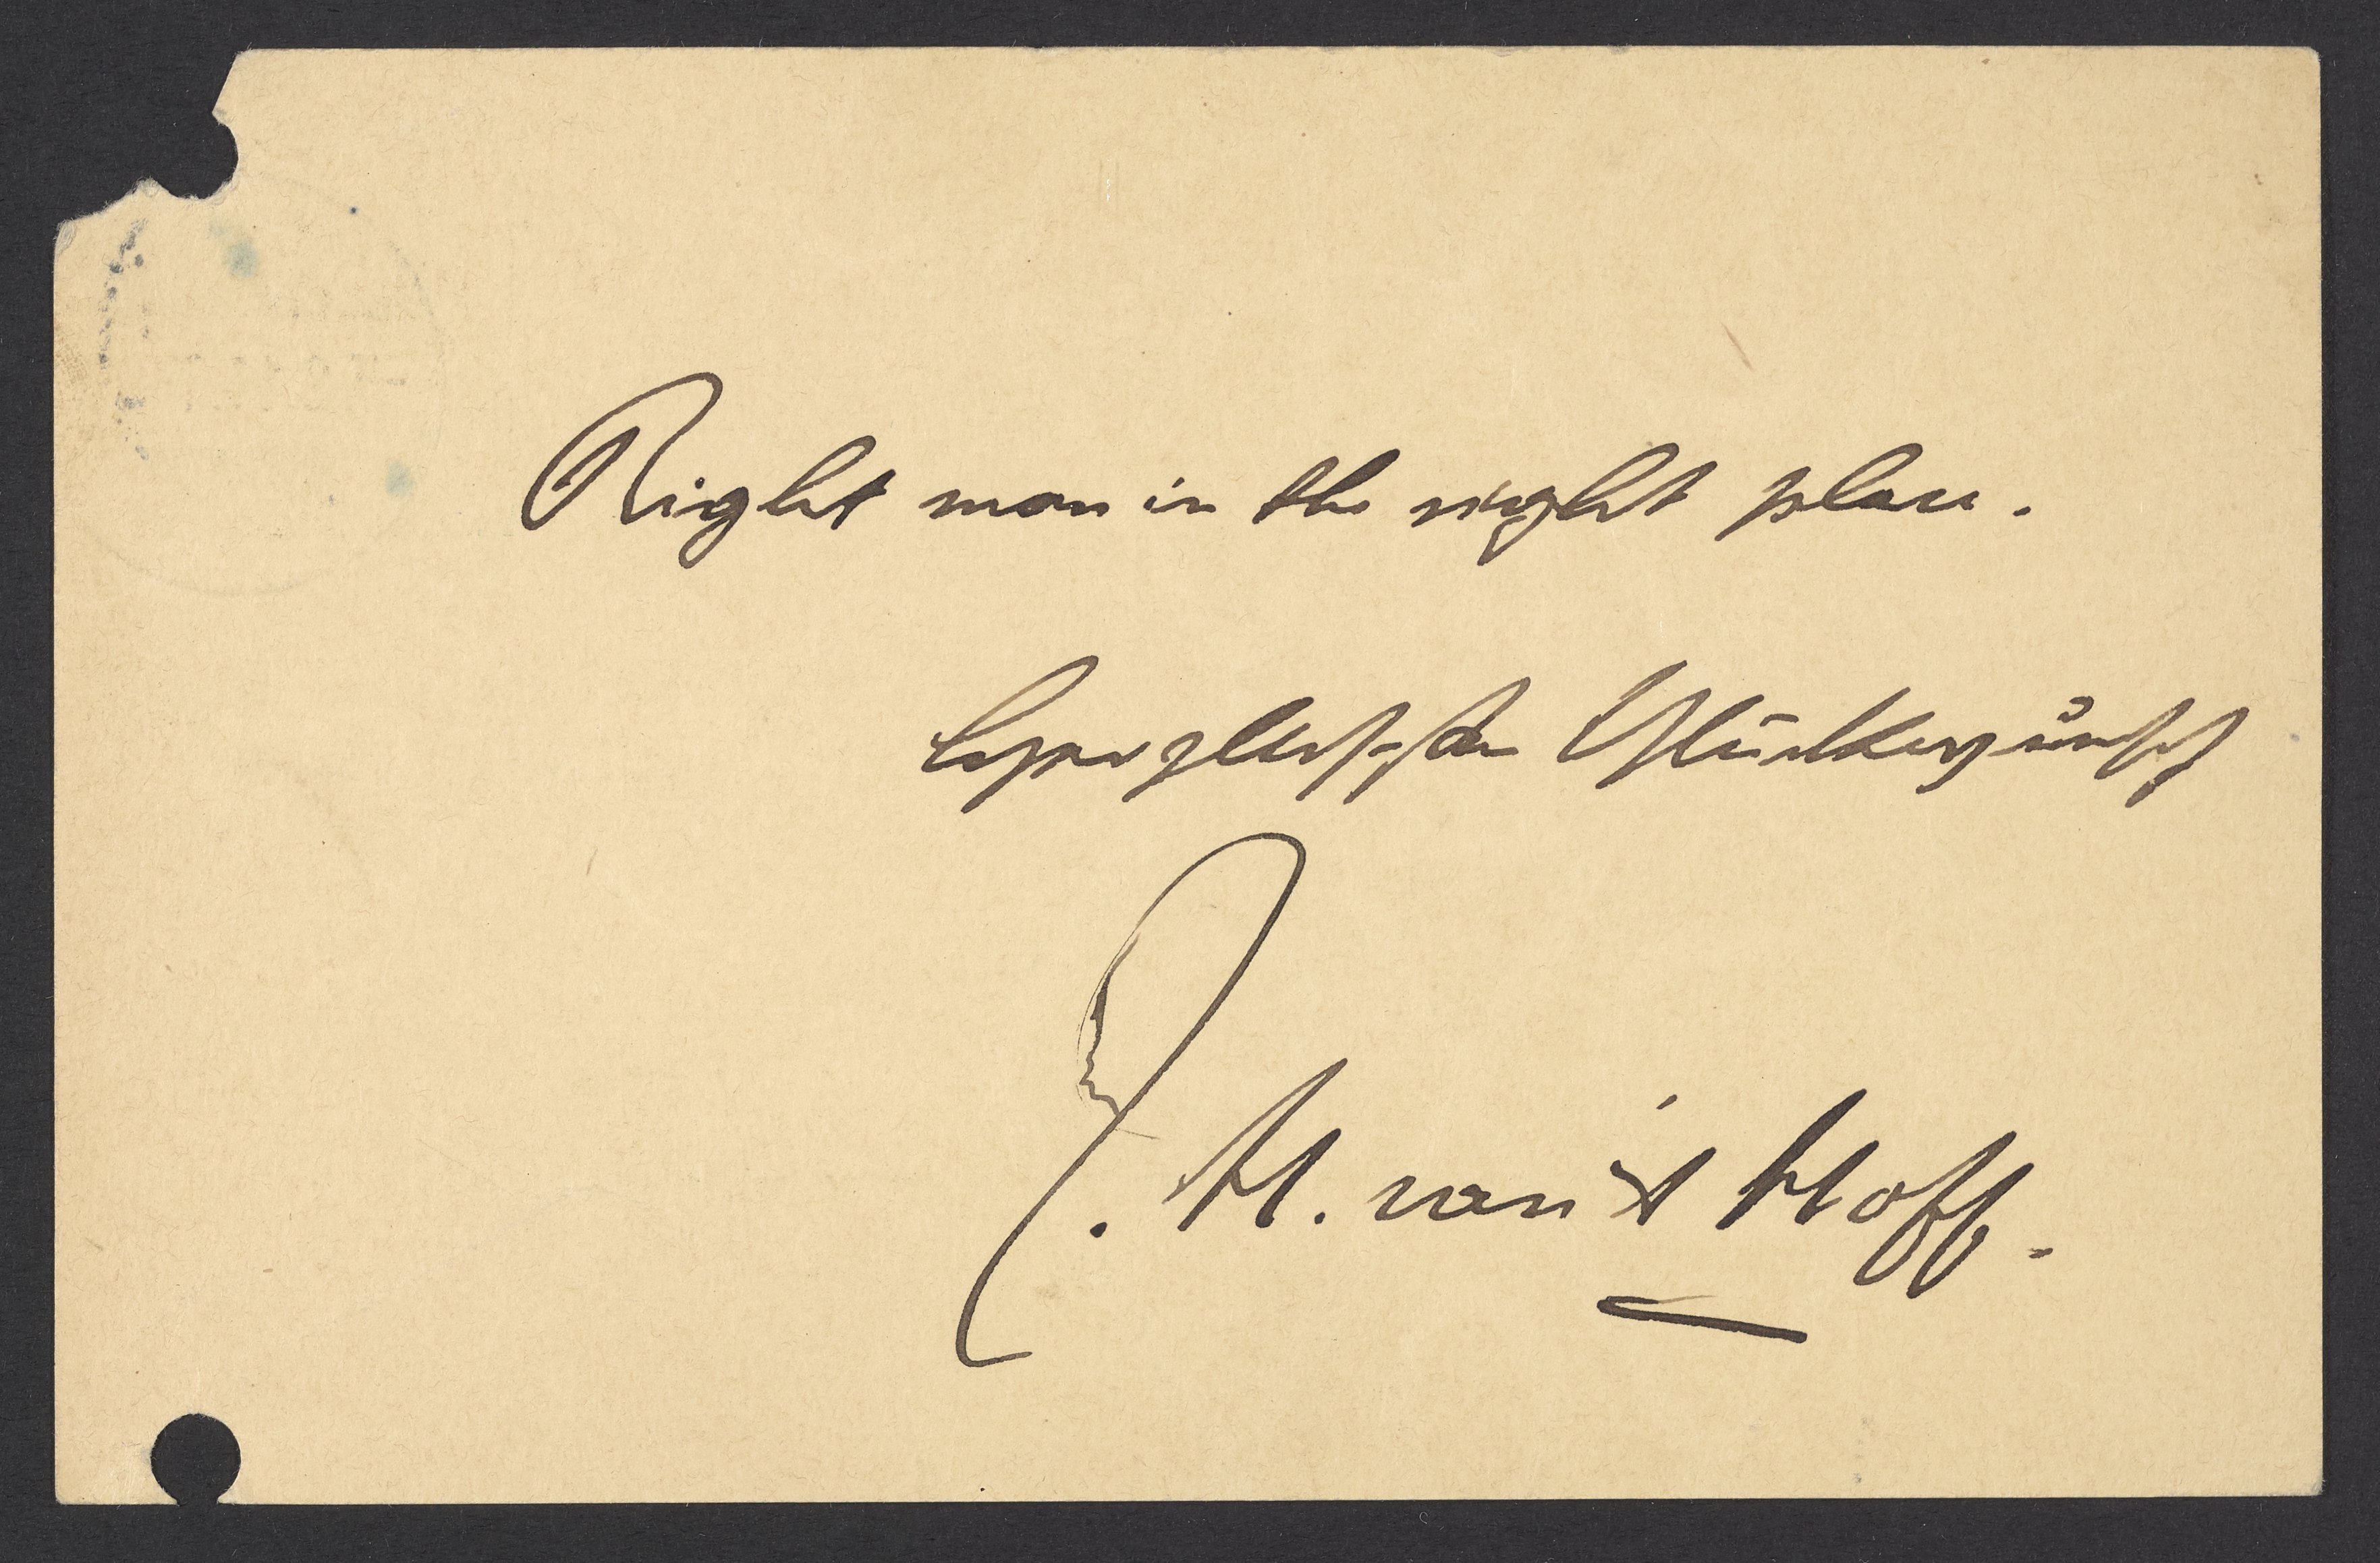 Right man in the right place.
herzlichsten Glückwunsch
J. H. van 't Hoff.